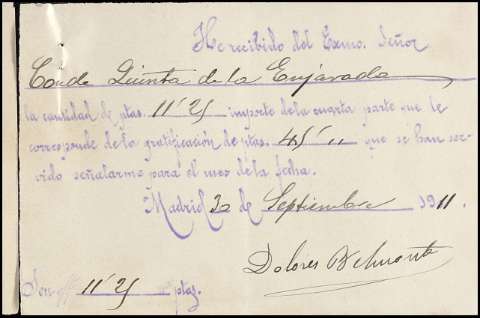 He recibido del Excmo. Señor
Conde Quinta de la Enjarada
la cantidad de ptas. 11'25 importe de la cuarta parte que le
corresponde de la gratificación de ptas. 45',, que se han ser-
vido señalarme para el mes de la fecha.
Madrid 30 de Septiembre 1911.
Dolores Belmonte
Son 11'25 ptas.